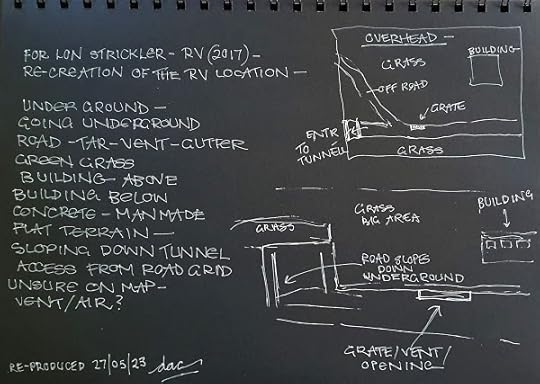 FOR LON STRICKLER - RV (2017) -
RE-CREATION OF THE RV LOCATION -
UNDER GROUND -
GOING UNDERGROUND
ROAD - TAR - VENT - GUTTER
GREEN GRASS
BUILDING ABOVE
BUILDING BELOW
CONCRETE - MANMADE
FLAT TERRAIN -
SLOPING DOWN TUNNEL
ACCESS FROM ROAD GRID
UNSURE ON MAP -
VENT/AIR?
RE-PRODUCED 27/05/23 dac
OVERHEAD -
GRASS
BUILDING
OFF ROAD
GRATE
ENTR
TO
TUNNEL
GRASS
GRASS
BIG AREA
BUILDING
GRASS
ROAD SLOPES
DOWN
UNDERGROUND
GRATE/VENT/
OPENING